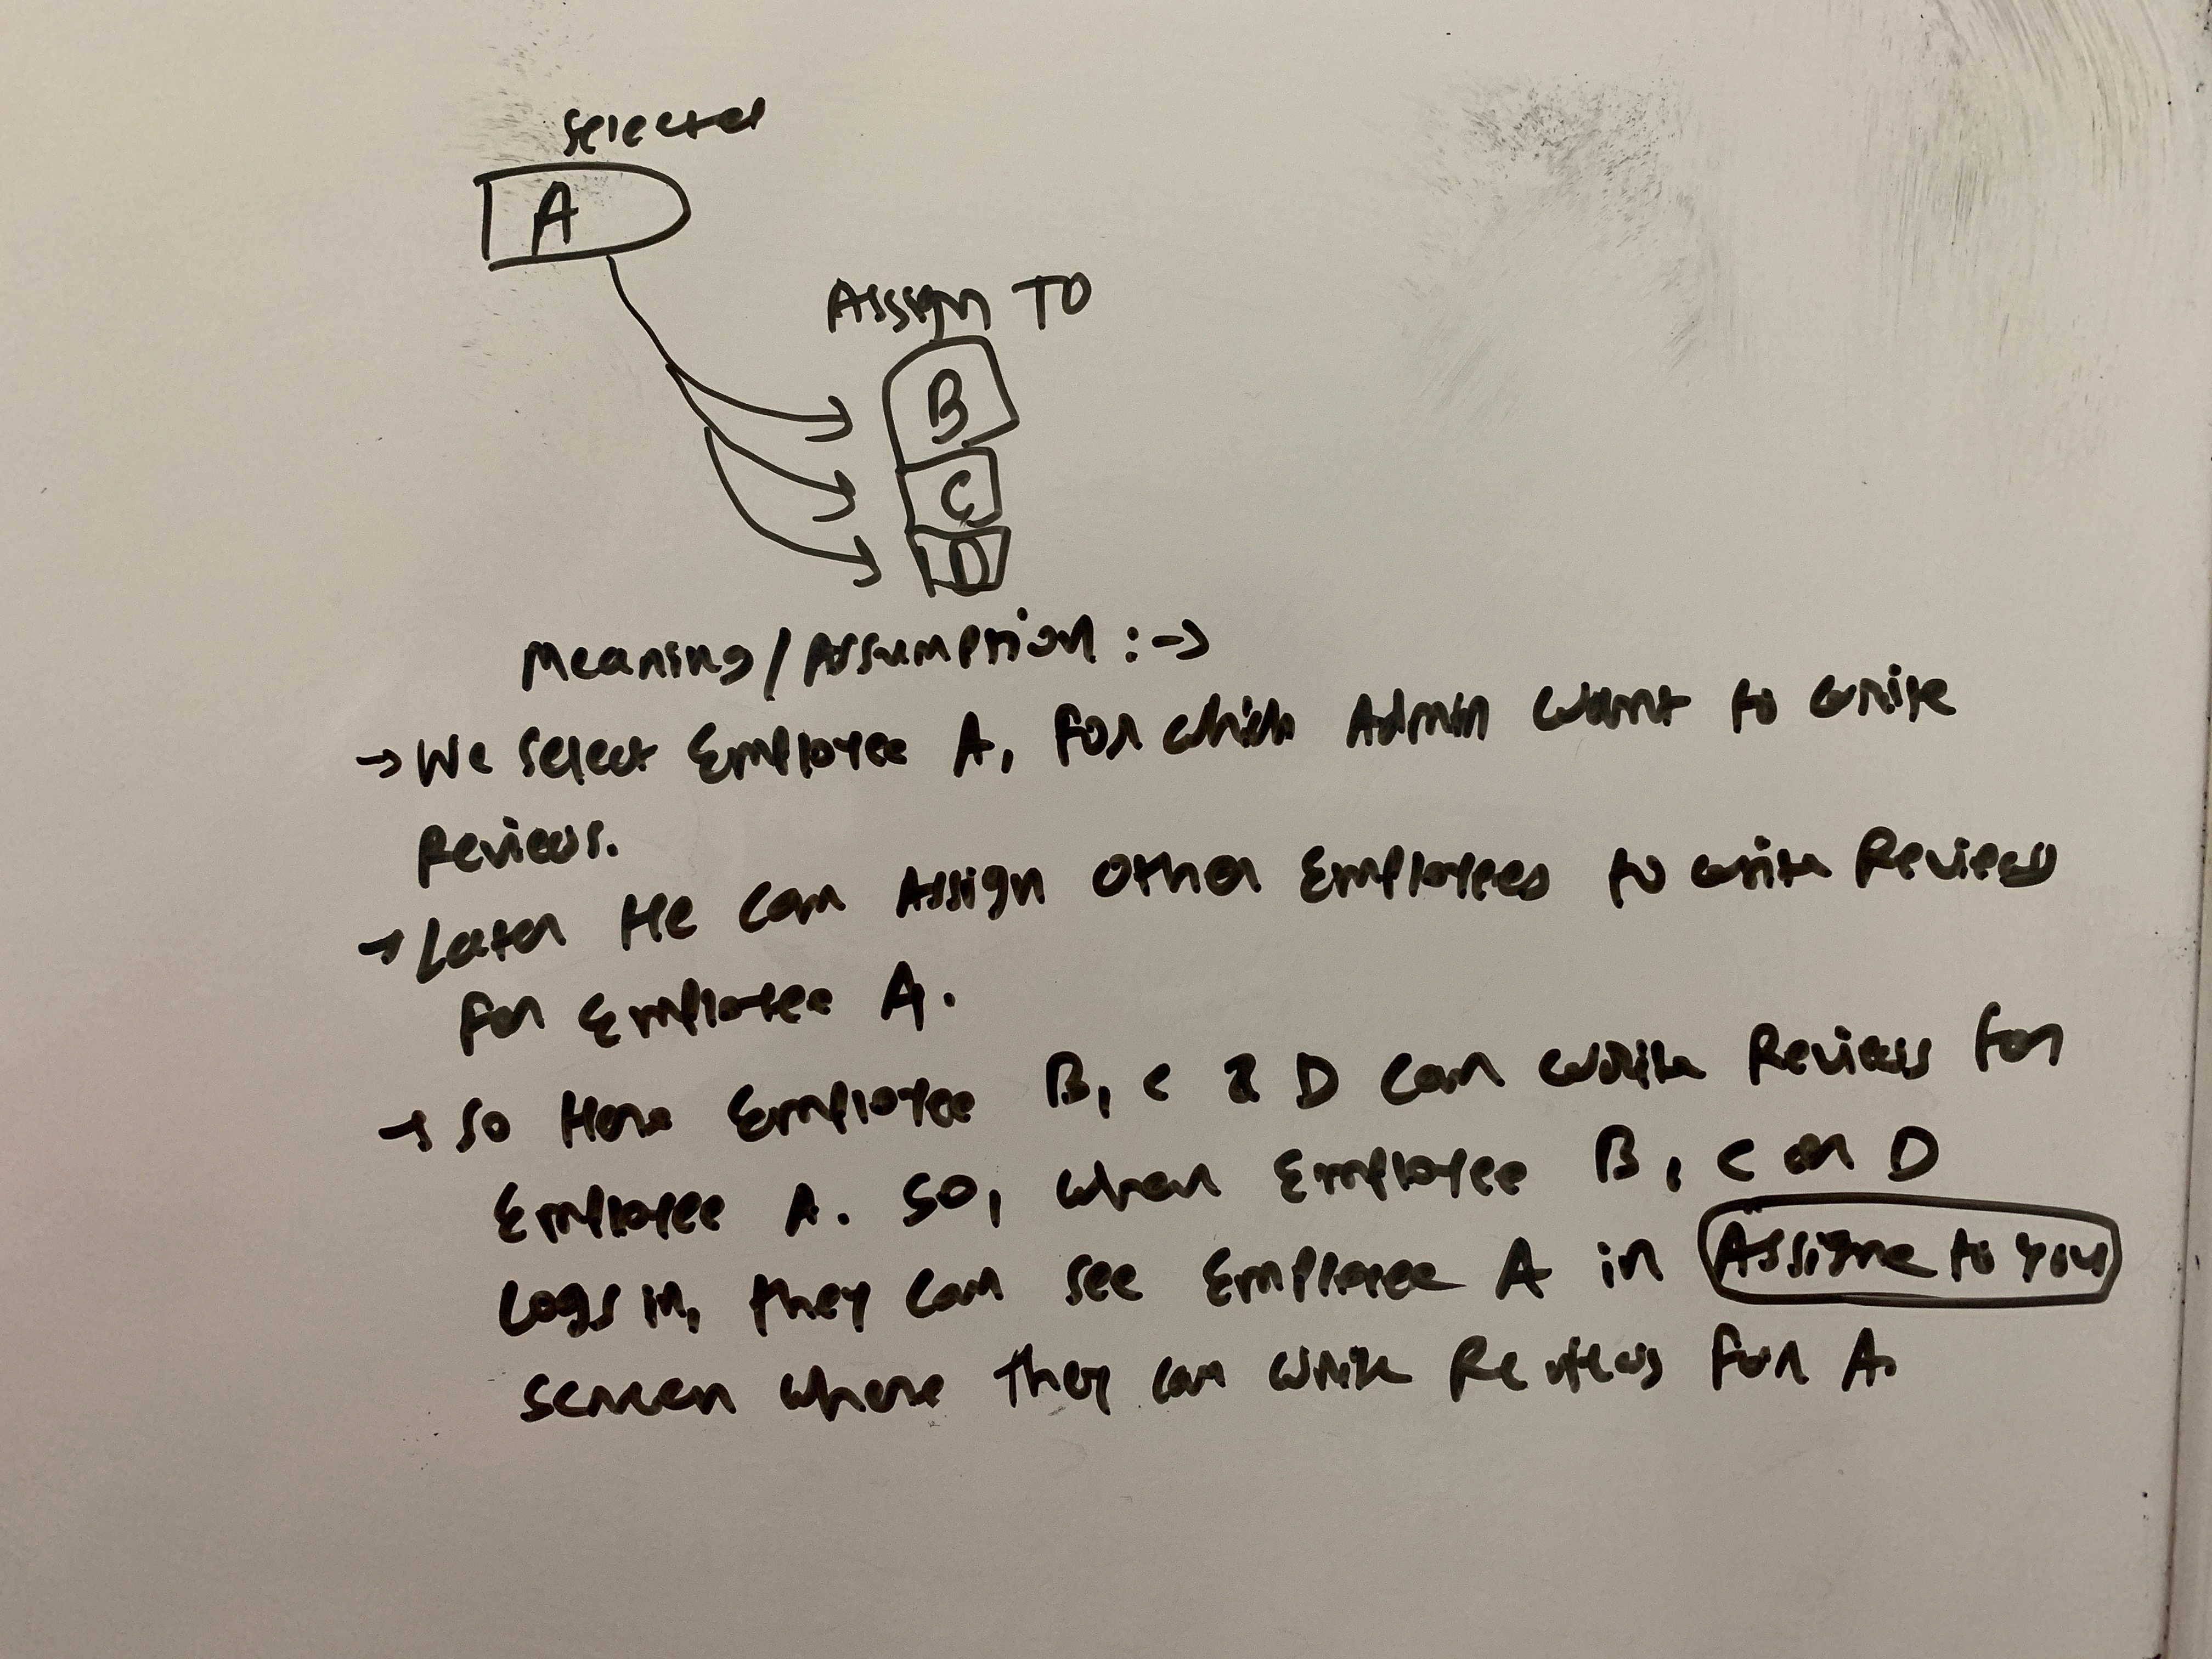 Selected
A
Assign TO
B
C
D
Meaning/Assumption :->
-> We select Employee A, for which Admin want to write
Reviews.
-> Later He can Assign other Employees to write Reviews
for Employee A.
-> So Here Employee B, C & D can write Reviews for
Employee A. So, when Employee B, C or D
Logs in, they can see Employee A in Assigne to you
screen where they can write Reviews for A.